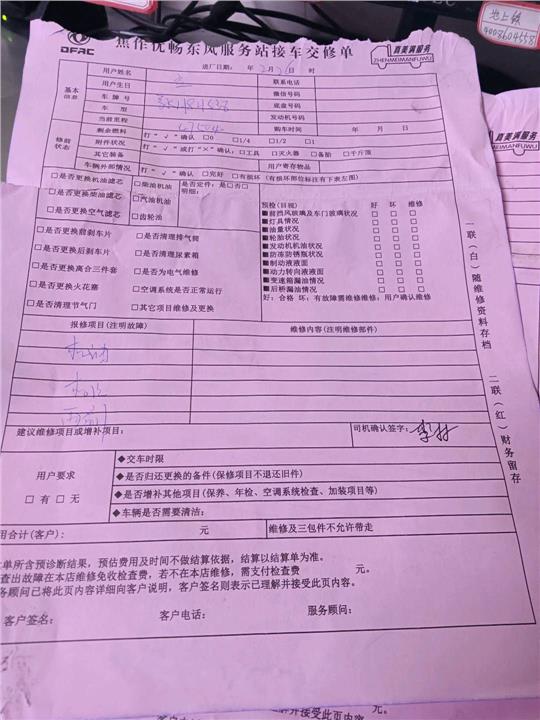 地上铁
4008604558
DFAC
焦作优畅东风服务站接车交修单
真美满服务
ZHENMEIMANFUWU
送厂日期: 年 2 月 26 日 时
基本信息
用户姓名
联系电话
用户生日
微信号码
车牌号
底盘号码
车型
发动机号码
当前里程
购车时间 年 月 日
修前状态
剩余燃料 打“√”确认 □0 □1/4 □1/2 □1
附件状况 打“√”或打“×”确认:□工具 □灭火器 □备胎 □千斤顶
其它装备
用户寄存物品
车辆外部情况 打“√”确认 □完好 □有损坏(有损坏部位标注有下表左图)
□是否更换机油滤芯 □柴油机油 是否定件:是□否□
明细:
□是否更换柴油滤芯 □汽油机油
□是否更换空气滤芯 □齿轮油
□是否更换前刹车片 □是否清理排气筒
□是否更换后刹车片 □是否清理尿素箱
□是否更换离合三件套 □是否为电气维修
□是否更换火花塞 □空调系统是否正常运行
□是否清理节气门 □其它项目维修及更换
预检(目视) 好 坏 维修
■前挡风玻璃及车门玻璃状况 □ □ □
■灯具情况 □ □ □
■油量状况 □ □ □
■轮胎状况 □ □ □
■发动机机油状况 □ □ □
■防冻防锈瓶状况 □ □ □
■制动液液面 □ □ □
■动力转向液液面 □ □ □
■变速箱漏油情况 □ □ □
■后桥漏油情况 □ □ □
好:合格 坏:有故障需维修维修:用户确认维修
报修项目(注明故障)
维修内容(注明维修部件)
机油
建议维修项目或增补项目:
司机确认签字:
用户要求
□有 □无
◆交车时限
◆是否归还更换的备件(保修项目不退还旧件)
◆是否增补其他项目(保养、年检、空调系统检查、加装项目等)
◆车辆是否需要清洁:
用合计(客户): 元
维修及三包件不允许带走
单所含预诊断结果,预估费用及时间不做结算依据,结算以结算单为准。
查出故障在本店维修免收检查费,若不在本店维修,需支付检查费 元。
务顾问已将此页内容详细向客户说明,客户签名则表示已理解并接受此页内容。
客户签名: 客户电话: 服务顾问:
一联(白)随维修资料存档
二联(红)财务留存
真美满服务
MEIMANFUWU
并接受此页内容。